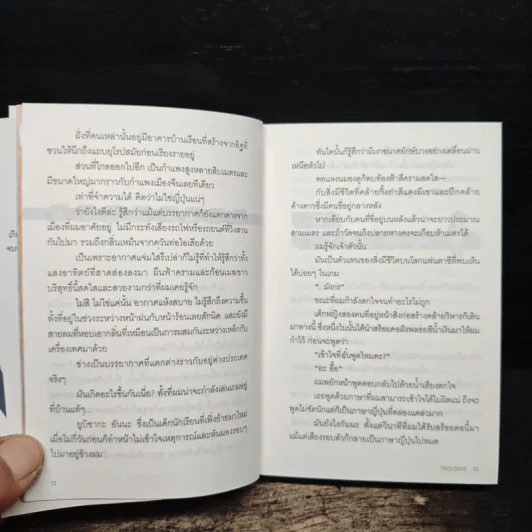 ฝั่งที่คนเหล่านั้นอยู่มีอาคารบ้านเรือนที่สร้างจากอิฐที่
ชวนให้นึกถึงแถบยุโรปสมัยก่อนเรียงรายอยู่
ส่วนที่ไกลออกไปอีก เป็นกำแพงสูงหลายสิบเมตรและ
มีขนาดใหญ่มากราวกับกำแพงเมืองจีนเลยทีเดียว
เท่าที่จำความได้ คิดว่าไม่ใช่ญี่ปุ่นแน่ๆ
ว่ายังไงดีล่ะ รู้สึกว่าแม้แต่บรรยากาศก็ยังแตกต่างจาก
เมืองที่ผมอาศัยอยู่ ไม่มีกระทั่งเสียงรถไฟหรือรถยนต์ที่วิ่งสวน
กันไปมา รวมถึงกลิ่นเหม็นจากควันท่อไอเสียด้วย
เป็นเพราะอากาศแจ่มใสรึเปล่าก็ไม่รู้ที่ทำให้รู้สึกว่าทั้ง
แสงอาทิตย์ที่สาดส่องลงมา ผืนฟ้าครามและก้อนเมฆขาว
บริสุทธิ์นี้สดใสและสวยงามกว่าที่ผมเคยรู้จัก
ไม่สิ ไม่ใช่แค่นั้น อากาศแห้งสบาย ไม่รู้สึกถึงความชื้น
ทั้งที่อยู่ในช่วงระหว่างหน้าฝนกับหน้าร้อนเลยสักนิด และยังมี
สายลมที่หอบเอากลิ่นที่เหมือนเป็นการผสมกันระหว่างเหล็กกับ
เครื่องเทศมาด้วย
ช่างเป็นบรรยากาศที่แตกต่างราวกับอยู่ต่างประเทศ
จริงๆ
มันเกิดอะไรขึ้นกันเนี่ย? ทั้งที่ผมน่าจะกำลังเล่นเกมอยู่
ที่บ้านแท้ๆ...
ยูบิซากะ อันนะ ซึ่งเป็นเด็กนักเรียนที่เพิ่งย้ายมาใหม่
เมื่อไม่กี่วันก่อนก็ทำหน้าไม่เข้าใจเหตุการณ์และหันมองรอบๆ
ไปมาอยู่ข้างผม
12
ทันใดนั้นก็รู้สึกว่ามีเงาขนาดยักษ์บางอย่างเคลื่อนผ่าน
เหนือหัวไป
พอแหงนมองดูก็พบท้องฟ้าสีครามสดใส—
กับสิ่งมีชีวิตที่คล้ายกิ้งก่าสีแดงมีเขาและปีกคล้าย
ค้างคาวซึ่งมีคนขี่อยู่กลางหลัง
หากเทียบกับคนที่ขี่อยู่บนหลังแล้วน่าจะยาวประมาณ
สามเมตร และถ้าวัดจนถึงปลายหางคงจะเกือบห้าเมตรได้
ผมรู้จักเจ้าตัวนั้น
มันเป็นตัวแทนของสิ่งมีชีวิตบนโลกแฟนตาซีที่พบเห็น
ได้บ่อยๆ ในเกม
"..มังกร"
ขณะที่ผมกำลังตกใจจนทำอะไรไม่ถูก
เด็กหญิงสองคนที่อยู่หน้าสิ่งก่อสร้างคล้ายวิหารก็เดิน
มาทางนี้ ซึ่งหนึ่งในนั้นได้นำสร้อยคอฝังพลอยสีน้ำเงินมาให้ผม
กำไว้ ก่อนจะพูดว่า
"เข้าใจที่ฉันพูดไหมคะ?"
"อะ อื้อ"
ผมพยักหน้าพูดตอบกลับไปด้วยน้ำเสียงตกใจ
เธอพูดด้วยภาษาที่ผมสามารถเข้าใจได้ไม่ผิดแน่ ถึงจะ
พูดไม่ชัดนักแต่ก็เป็นภาษาญี่ปุ่นที่คล่องแคล่วมาก
มันยังไงกันนะ ตั้งแต่วินาทีที่ผมได้รับสร้อยคอนี้มา
แม้แต่เสียงรอบตัวก็กลายเป็นภาษาญี่ปุ่นไปหมด
PROLOGUE 13